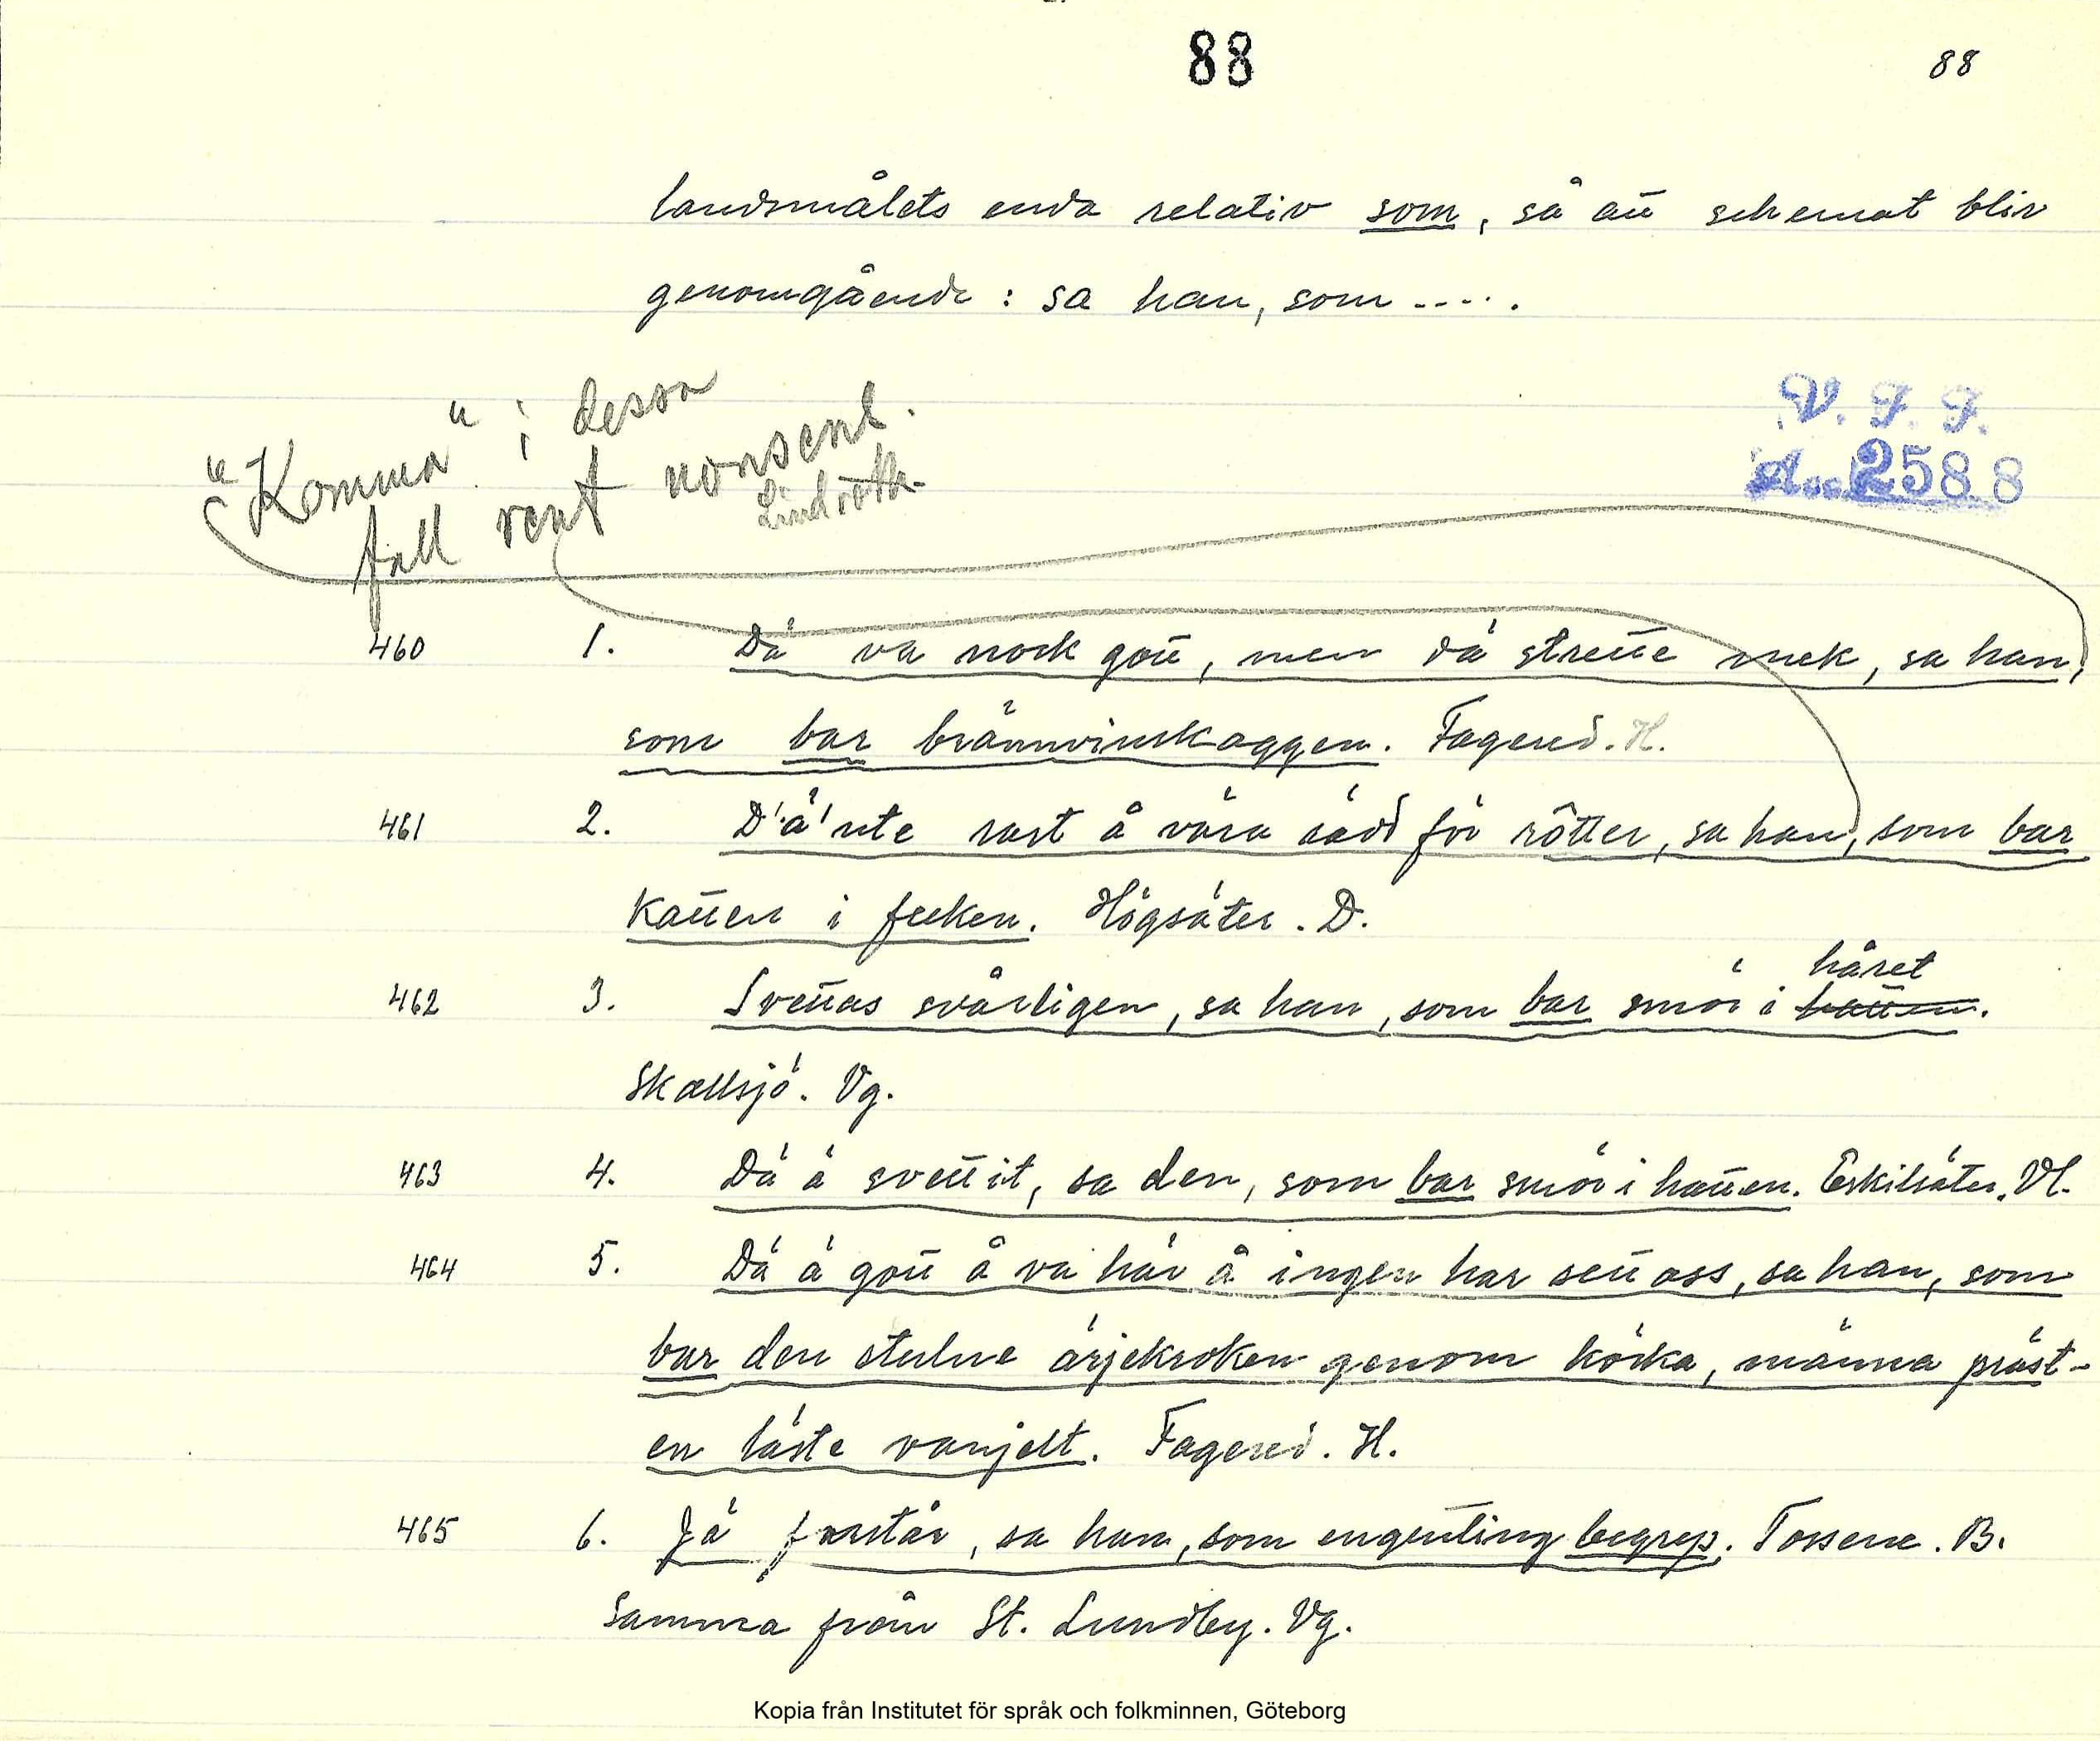 88
88
landsmålets enda relativ som, så att schemat blir
genomgående: sa han, som .....
"Komma" i dessa
fall rent nonsens.
Lindroth.
V. F. F.
Acc. 2588
460 1. Dä va nock gott, men dä strette mek, sa han,
som bar brännvinskaggen. Fagered. H.
461 2. D'ä'nte rart å vära rädd för råtter, sa han, som bar
katten i fecken. Högsäter. D.
462 3. Svettas svårligen, sa han, som bar smör i hatten. håret
Skallsjö. Vg.
463 4. Dä ä svettit, sa den, som bar smör i hatten. Eskilsäter. Vl.
464 5. Dä ä gott å va här å ingen har sett oss, sa han, som
bar den stulne ärjekroken genom körka, männa präst-
en läste vanjelt. Fagered. H.
465 6. Jä forstår, sa han, som engenting begrep. Tossene. B.
Samma från St. Lundby. Vg.
Kopia från Institutet för språk och folkminnen, Göteborg